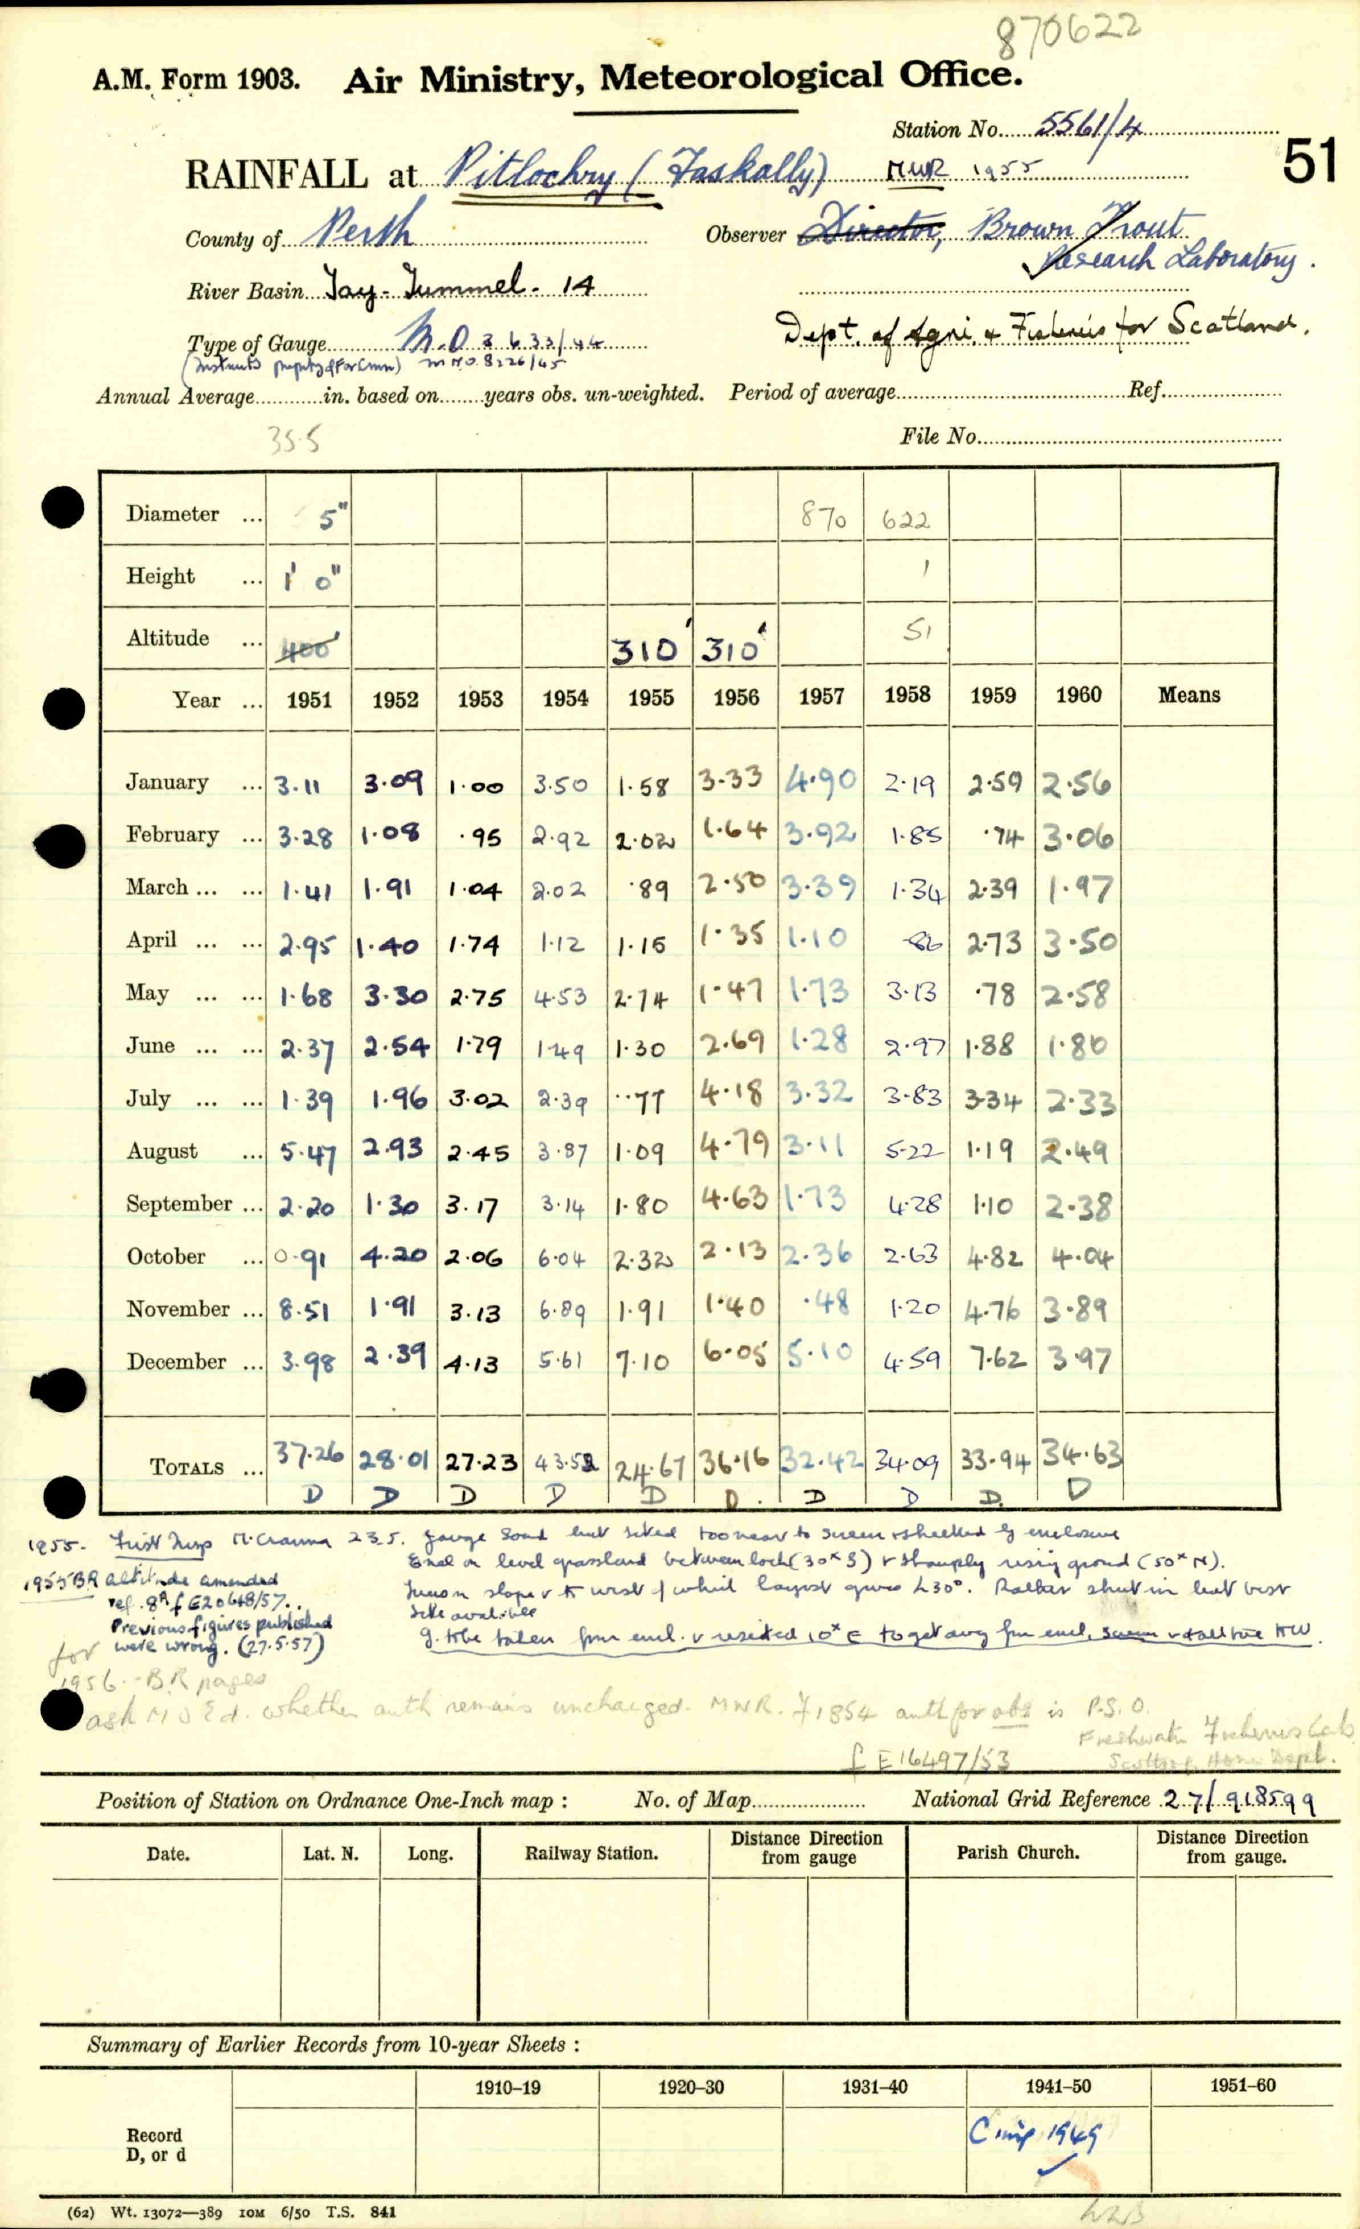 870622
A.M. Form 1903. Air Ministry, Meteorological Office.
Station No. 5561/4
51
RAINFALL at Pitlochry (Faskally) MWR 1955
County of Perth Observer Director, Brown Trout
Research Laboratory.
River Basin Tay-Tummel. 14
Dept. of Agri & Fisheries for Scotland.
Type of Gauge M.O 2633/44
M.O. 8226/45
Annual Average in. based on years obs. un-weighted. Period of average Ref.
35.5
File No.
Diameter ... 5" 870 622
Height ... 1' 0" 1
Altitude ... 400' 310' 310' 51
Year ... 1951 1952 1953 1954 1955 1956 1957 1958 1959 1960 Means
January ... 3.11 3.09 1.00 3.50 1.58 3.33 4.90 2.19 2.59 2.56
February ... 3.28 1.08 .95 2.92 2.02 1.64 3.92 1.85 .74 3.06
March ... ... 1.41 1.91 1.04 2.02 .89 2.50 3.39 1.34 2.39 1.97
April ... ... 2.95 1.40 1.74 1.12 1.15 1.35 1.10 .86 2.73 3.50
May ... ... 1.68 3.30 2.75 4.53 2.74 1.47 1.73 3.13 .78 2.58
June ... ... 2.37 2.54 1.79 1.49 1.30 2.69 1.28 2.97 1.88 1.86
July ... ... 1.39 1.96 3.02 2.39 .77 4.18 3.32 3.83 3.34 2.33
August ... 5.47 2.93 2.45 3.87 1.09 4.79 3.11 5.22 1.19 2.49
September ... 2.20 1.30 3.17 3.14 1.80 4.63 1.73 4.28 1.10 2.38
October ... 0.91 4.20 2.06 6.04 2.32 2.13 2.36 2.63 4.82 4.04
November ... 8.51 1.91 3.13 6.89 1.91 1.40 .48 1.20 4.76 3.89
December ... 3.98 2.39 4.13 5.61 7.10 6.05 5.10 4.59 7.62 3.97
TOTALS ... 37.26 28.01 27.23 43.52 24.67 36.16 32.42 34.09 33.94 34.63
D D D D D D. D D D. D
1955. First Insp 23.5. gauge sound but sited too near to screen & sheltered by enclosure
Encl on level grassland between loch (30x S) & sharply rising ground (50x N).
1955 BR altitude amended
ref. 8A f E20648/57..
Previous figures published
were wrong. (27.5.57)
Rather shut in but best
site available
for
1956 - B.R pages
ask M O Ed. whether auth remains unchanged. MWR. auth for obs is P.S.O.
Freshwater Fisheries Lab
Scottish Home Dept.
f E16497/53
Position of Station on Ordnance One-Inch map : No. of Map National Grid Reference 27/918599
Date. Lat. N. Long. Railway Station. Distance from gauge Direction Parish Church. Distance Direction from gauge.
Summary of Earlier Records from 10-year Sheets :
1910–19 1920–30 1931–40 1941–50 1951–60
Record
D, or d
1949
(62) Wt. 13072—389 10M 6/50 T.S. 841